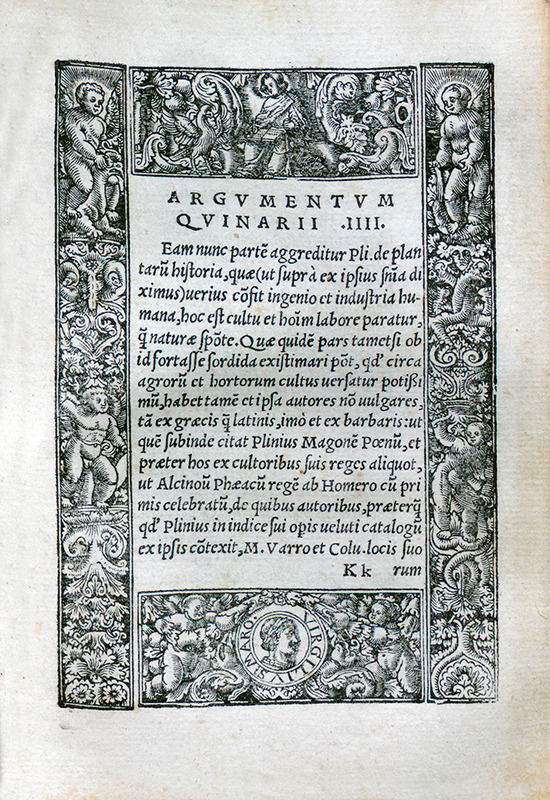 ARGVMENTVM
QVINARII .IIII.
Eam nunc partē aggreditur Pli. de plan
tarū historia, quæ (ut suprà ex ipsius sñia di
ximus) uerius cōfit ingenio et industria hu-
mana, hoc est cultu et hoīm labore paratur,
q̄ naturæ spōte. Quæ quidē pars tametsi ob
id fortasse sordida existimari pōt, qd' circa
agrorū et hortorum cultus uersatur potißi
mū, habet tamē et ipsa autores nō uulgares,
tā ex græcis q̄ latinis, imò et ex barbaris: ut
quē subinde citat Plinius Magonē Pœnū, et
præter hos ex cultoribus suis reges aliquot,
ut Alcinoū Phæacū regē ab Homero cū pri
mis celebratū, de quibus autoribus, præterq̄
qd' Plinius in indice sui opīs ueluti catalogū
ex ipsis cōtexit, M. Varro et Colu. locis suo
Kk rum
VIRGILIVS MARO